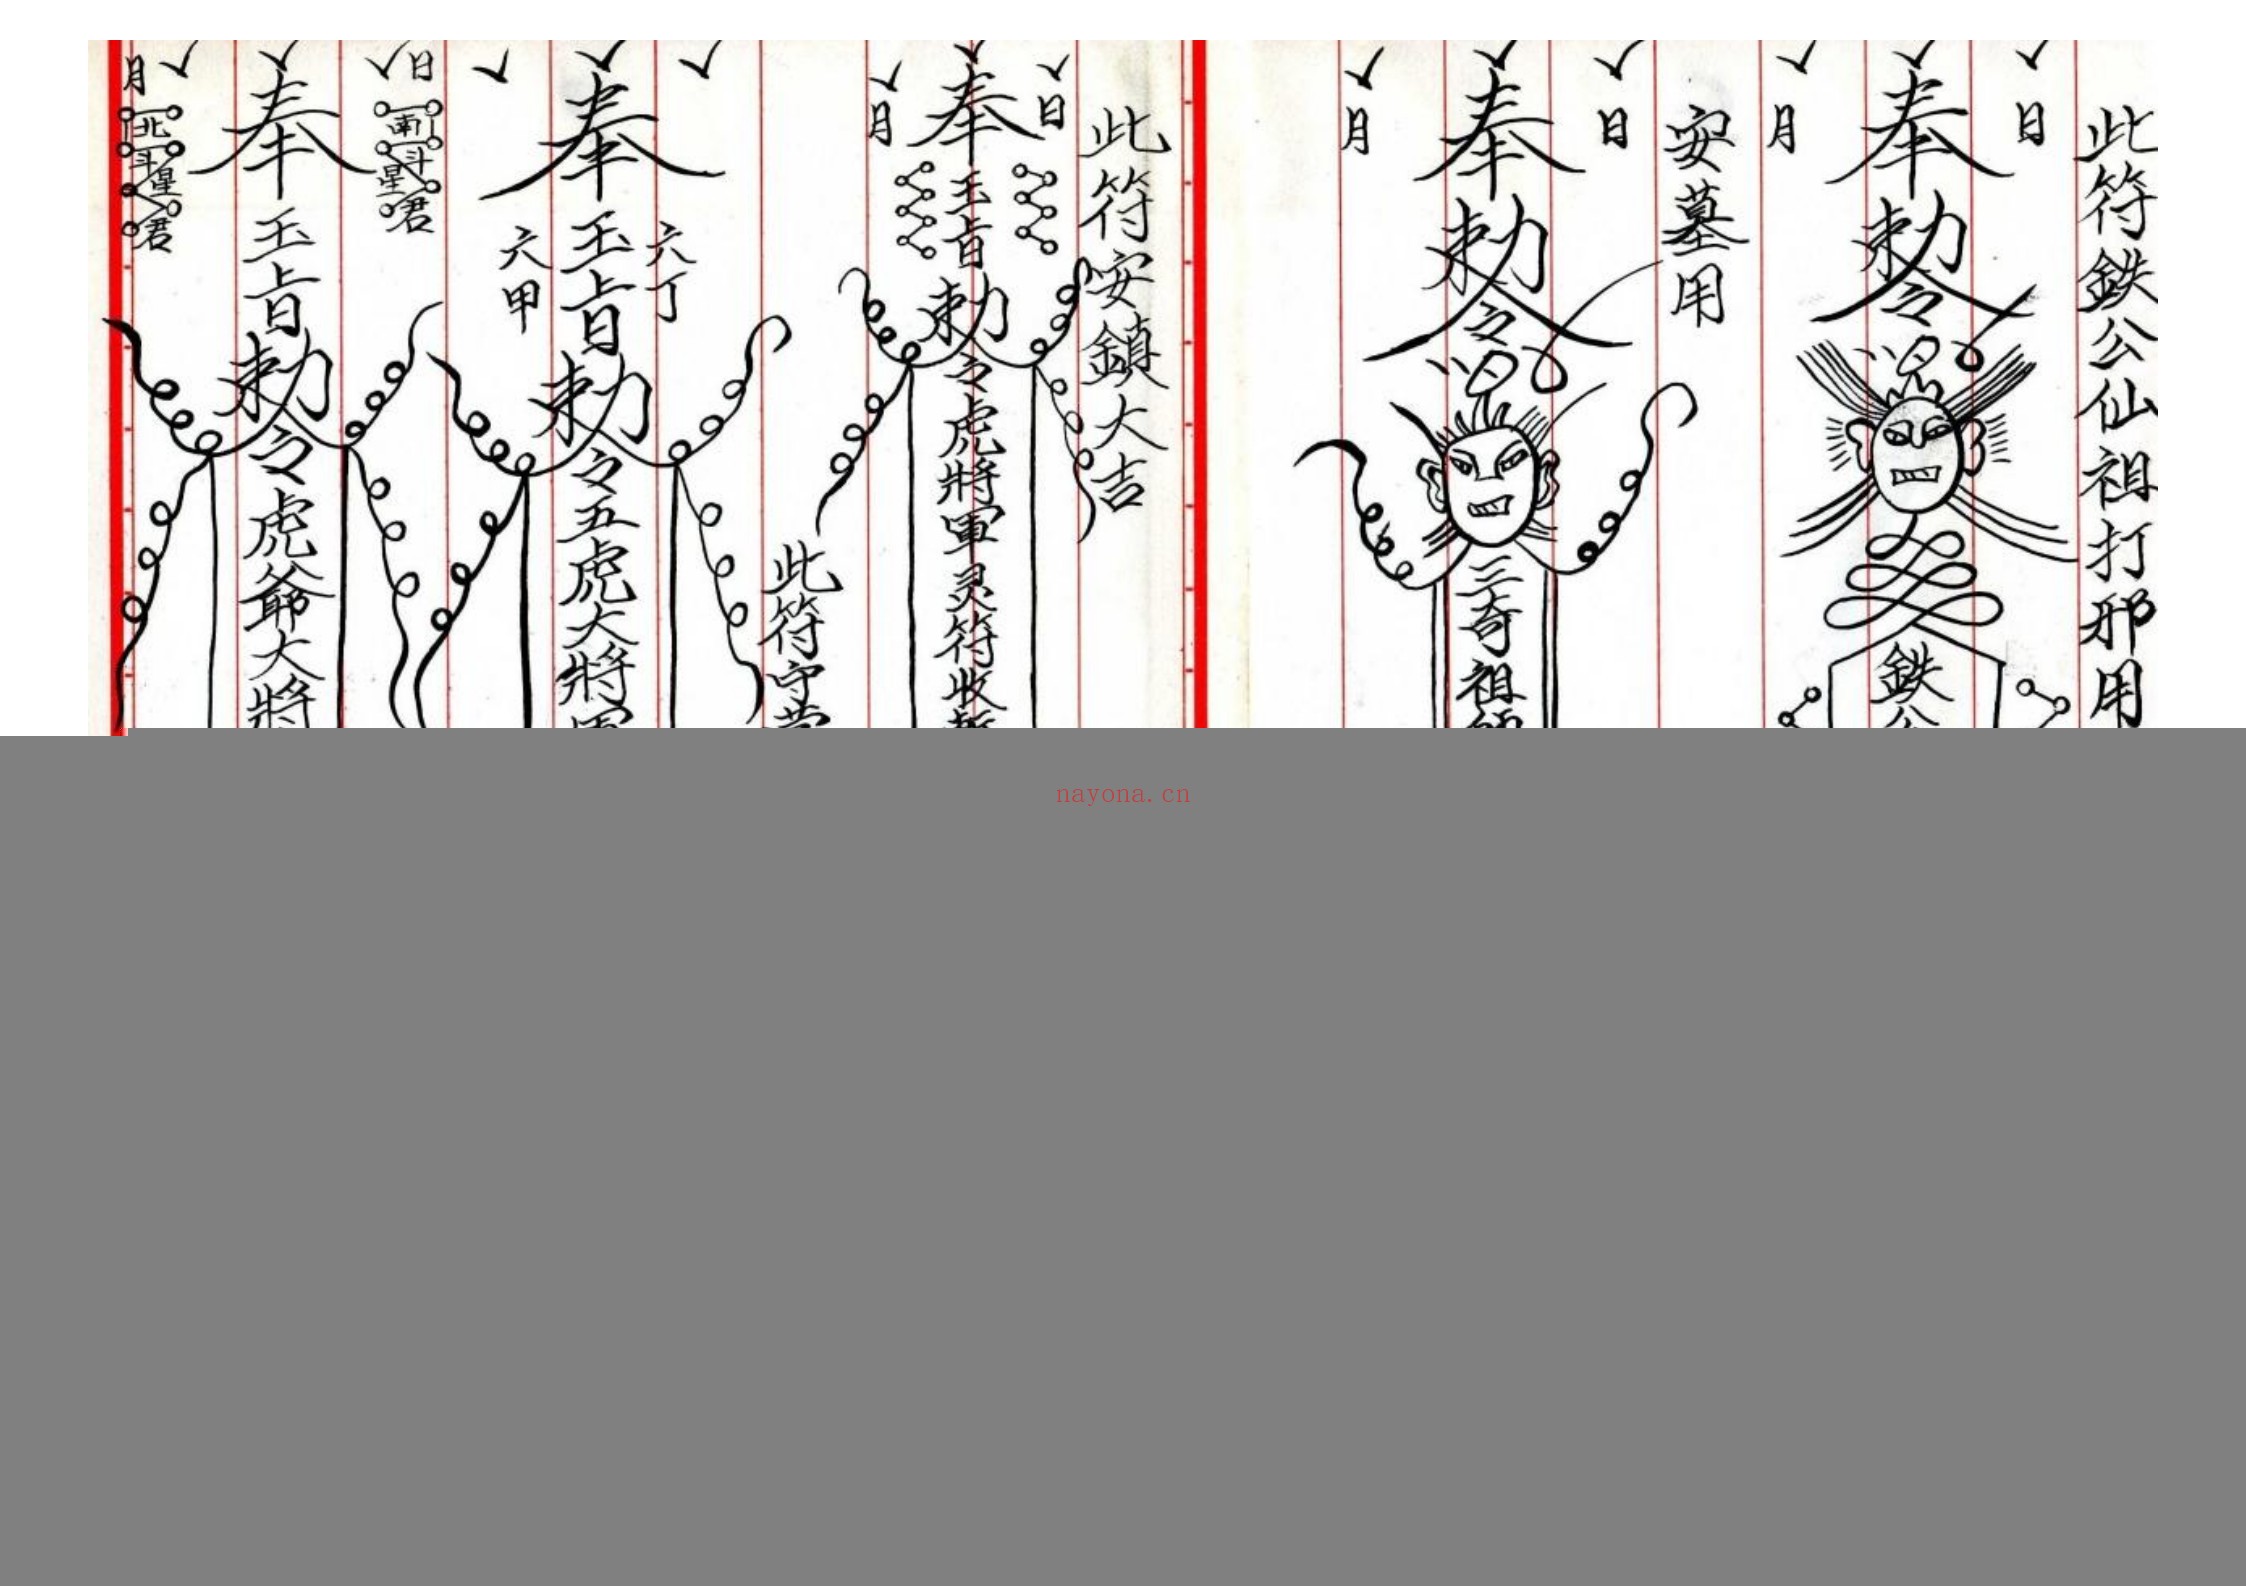 此符鉄公仙祖打邪用
日
奉勅令
月
鉄
安墓用
日
奉勅令
月
三奇祖
此符安鎮大吉
日
奉玉旨勅令虎將軍灵符收
月
此符守
六丁
奉玉旨勅令五虎大將軍
六甲
日
南斗星君
奉玉旨勅令虎爺大將
月
北斗星君
nayona.cn